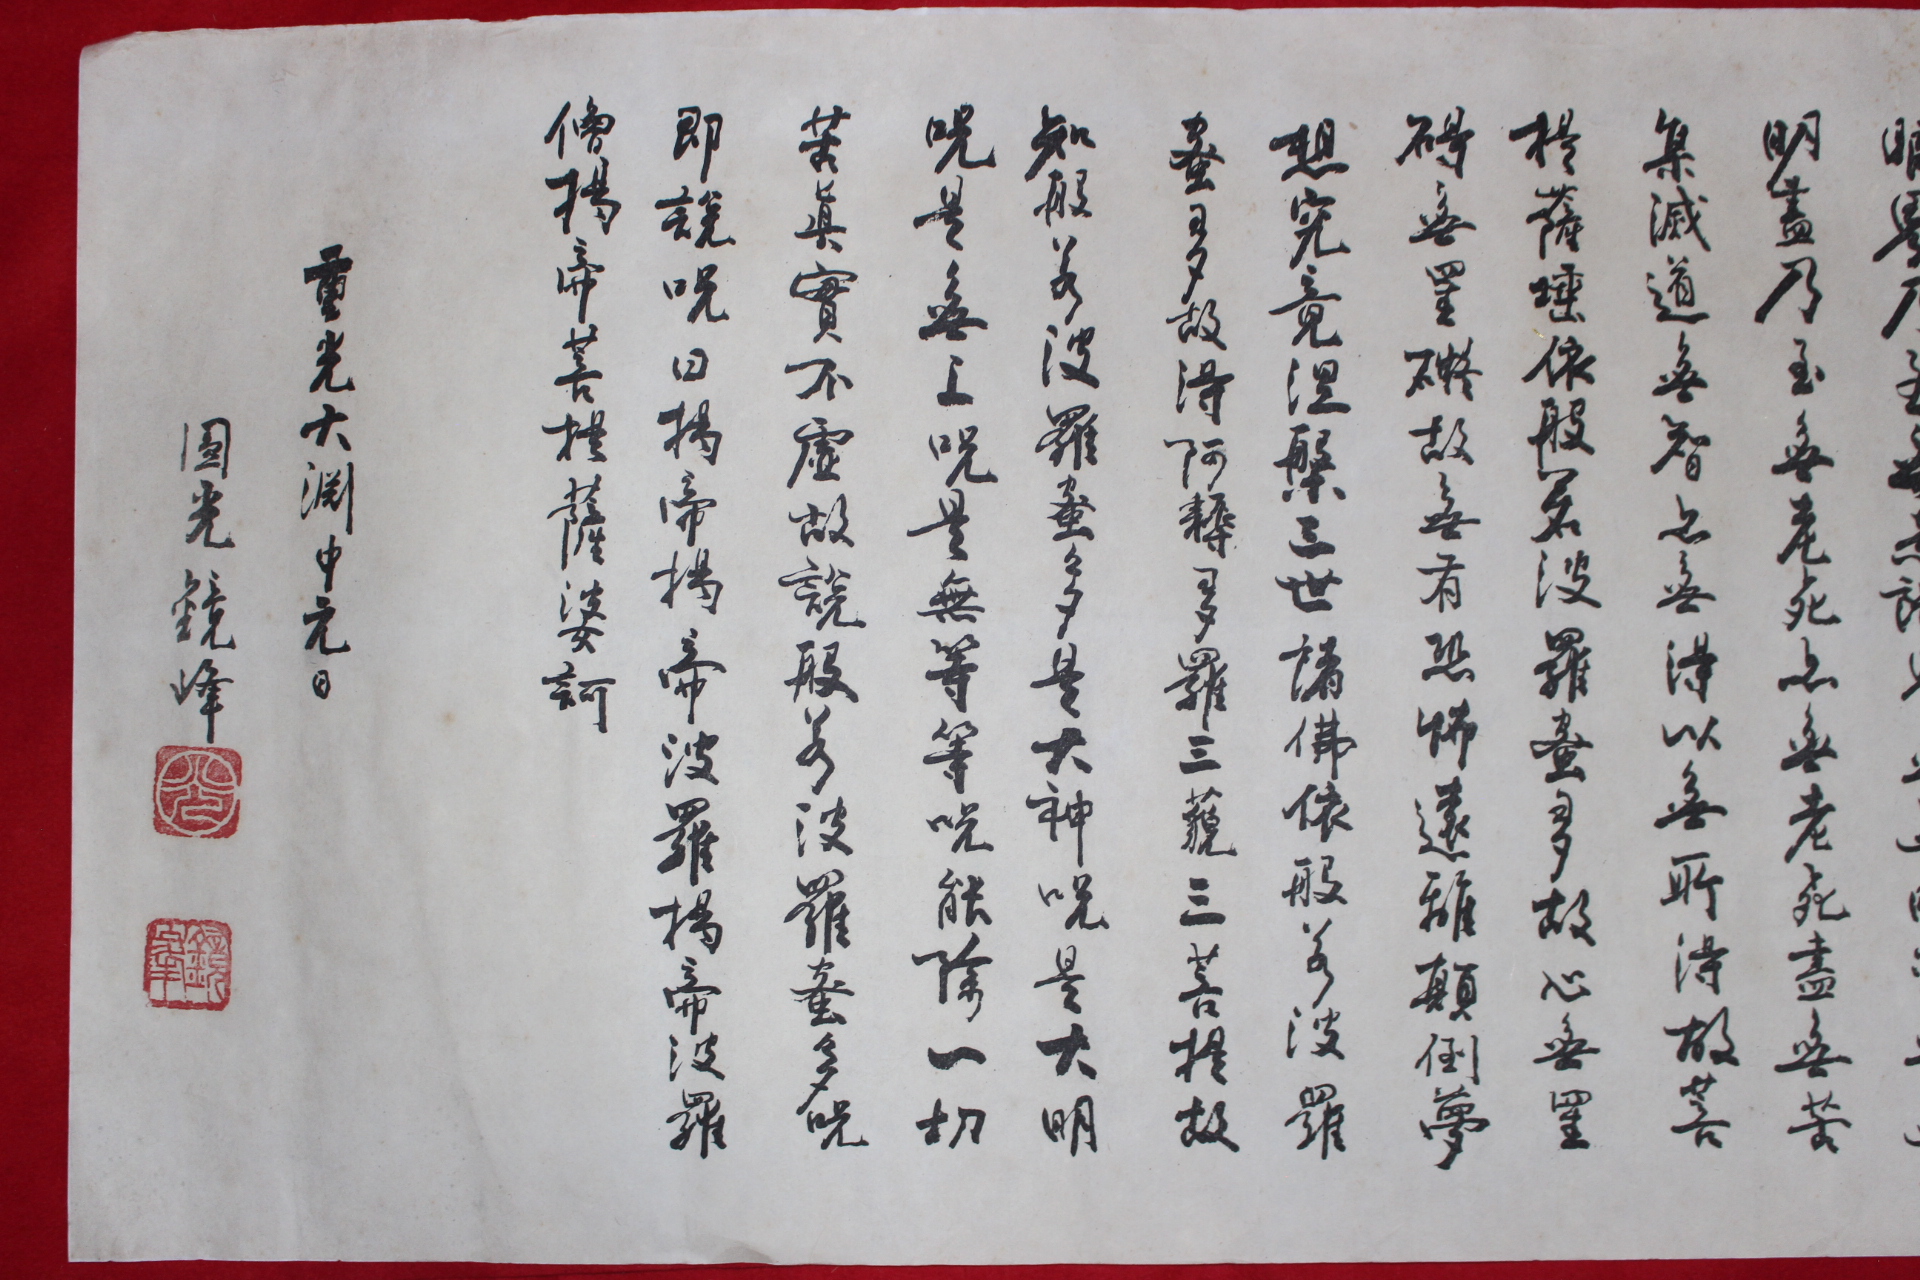 眼界乃至無意識
明盡乃至無老死亦無老死盡無苦
集滅道無智亦無得以無所得故菩
提薩埵依般若波羅蜜多故心無罣
碍無罣礙故無有恐怖遠離顛倒夢
想究竟涅槃三世諸佛依般若波羅
蜜多故得阿耨多羅三藐三菩提故
知般若波羅蜜多是大神呪是大明
呪是無上呪是無等等呪能除一切
苦眞實不虛故說般若波羅蜜多呪
即說呪曰揭帝揭帝波羅揭帝波羅
僧揭帝菩提薩婆訶
重光大淵中元日
圓光鏡峰
光
鏡峯